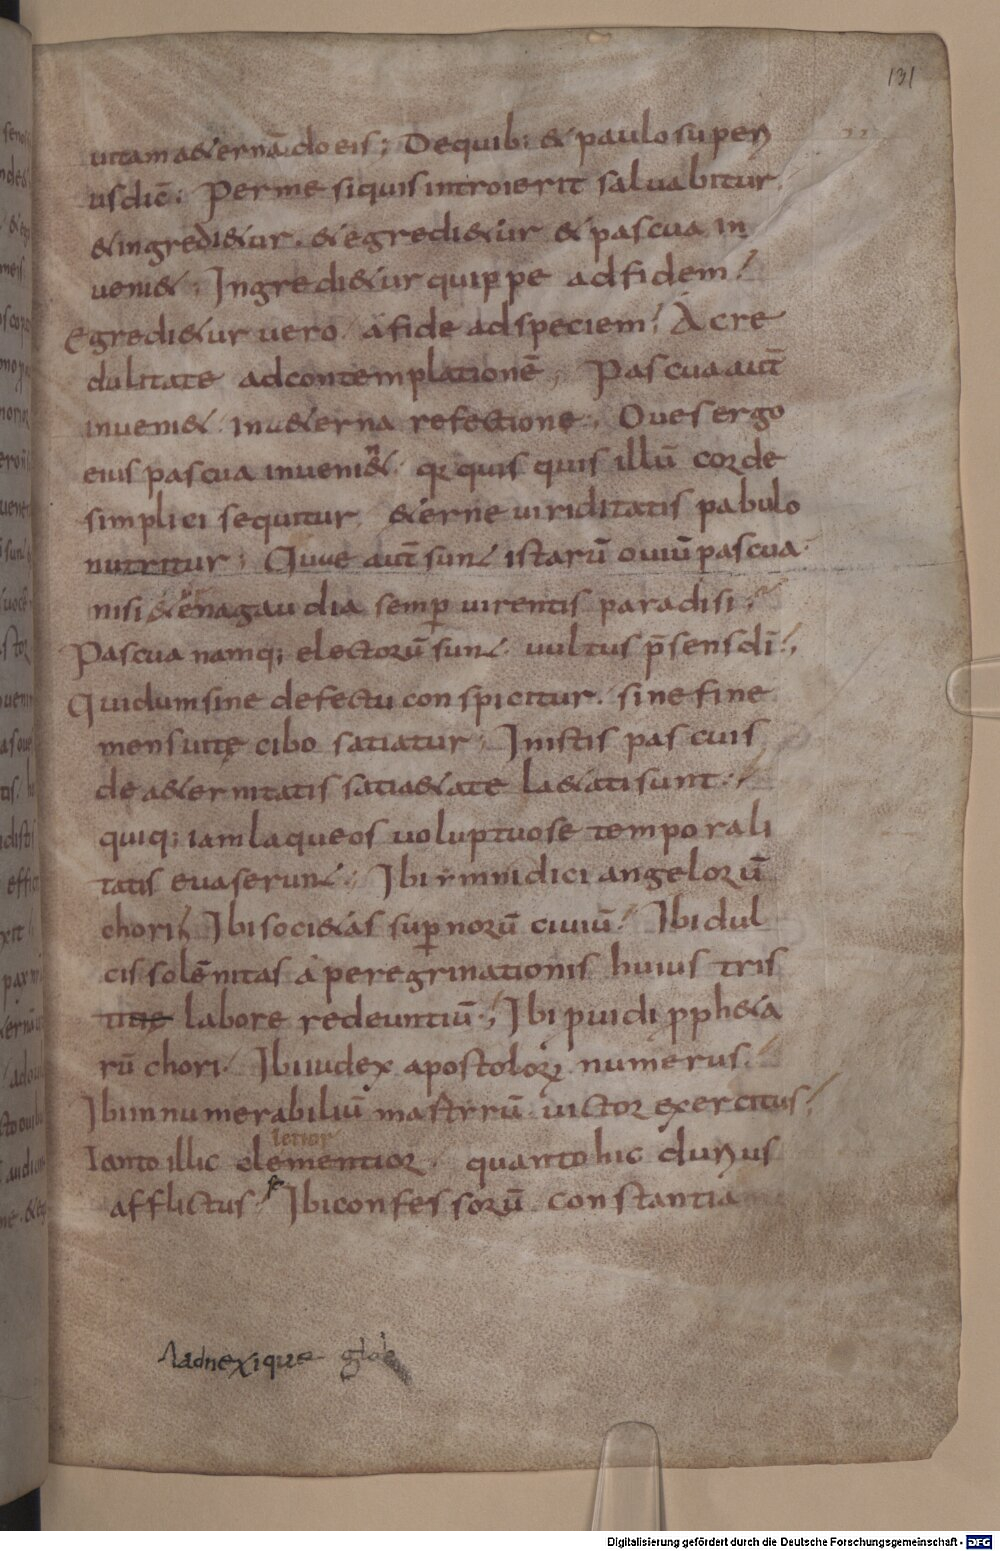 131
uitam a&ernā do eis; De quib; & paulo superi
us dic̄; Per me si quis introierit saluabitur
& ingredi&ur. & egredi&ur & pascua in
ueni&; Ingredi&ur quippe ad fidem;
Egredi&ur uero a fide ad speciem; A cre
dulitate ad contemplationē; Pascua aut̄
inueni& in a&erna refectione; Oues ergo
eius pascua inueni&. qr quis quis illū corde
simplici sequitur &erne uiriditatis pabulo
nutritur; Quae aut̄ sunt istarū ouiū pascua.
nisi &erna gaudia semp uirentis paradisi;
Pascua namq; electorū sunt uultus p̄sens dī;
Qui dum sine defectu conspicitur. sine fine
mens uitę cibo satiatur; In istis pascuis
de a&ernitatis sati&ate l&ati sunt;
quiq; iam laqueos uoluptuose temporali
tatis euaserunt; Ibi ymnidici angelorū
chori; Ibi soci&as supnorū ciuiū; Ibi dul
cis solēnitas a peregrinationis huius tris
titie labore redeuntiū; Ibi puidi pph&a
rū chori; Ibi iudex apostolorum numerus;
Ibi innumerabiliū martyrū uictor exercitus;
letior
Tanto illic clementior quanto hic durius
afflictus; Ibi confessorū constantia
adnexique glob
Digitalisierung gefördert durch die Deutsche Forschungsgemeinschaft - DFG